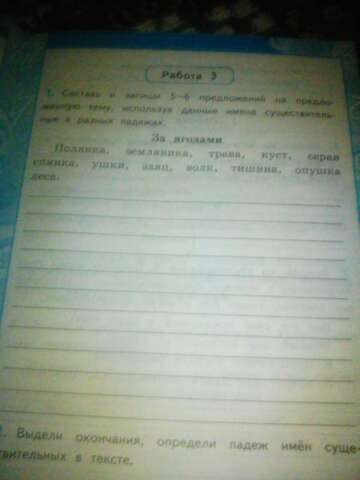 Работа 3
1. Составь и запиши 5—6 предложений на предло-
женную тему, используя данные имена существитель-
ные в разных падежах.
За ягодами
Полянка, земляника, трава, куст, серая
спинка, ушки, заяц, волк, тишина, опушка
леса.
2. Выдели окончания, определи падеж имён суще-
ствительных в тексте.